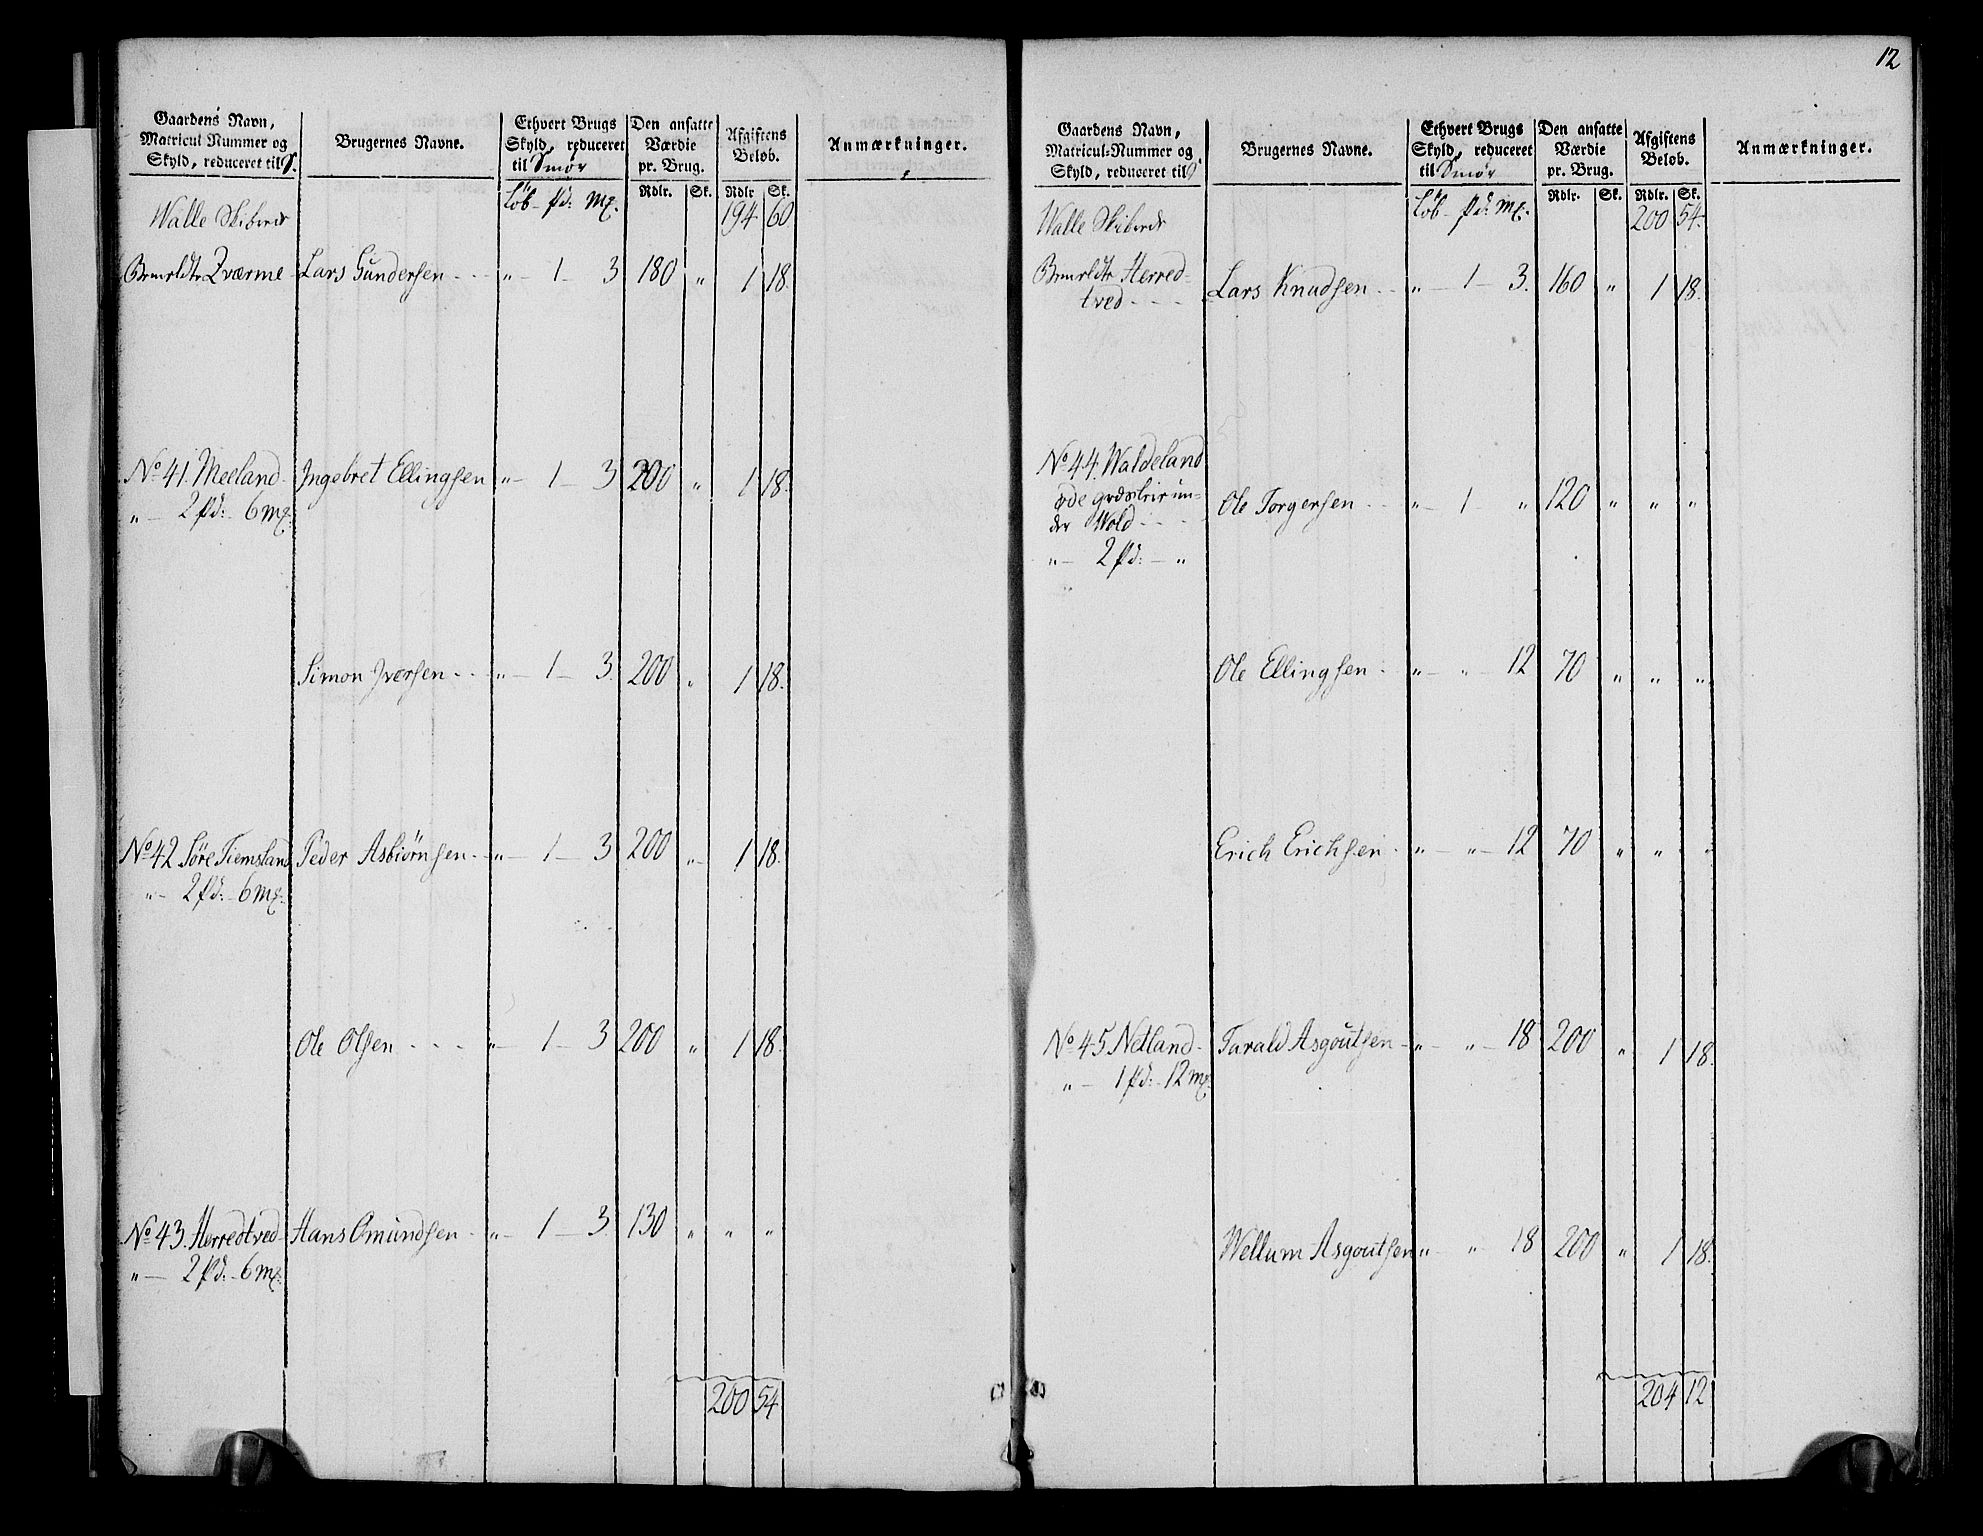 Gaardens Navn,
Matricul Nummer og
Skyld, reduceret til S.
Brugernes Navne.
Ethvert Brugs
Skyld, reduceret
til Smör
Löb - pd: - mk.
Den ansatte
Værdie
pr. Brug.
Rdlr. Sk.
Afgiftens
Beløb.
Rdlr Sk.
Anmærkninger.
Walle Skibrede 194 60
Zværme Lars Gundersen - - - " - 1 - 3 180 " 1 18.
No 41. Meeland Ingebret Ellingsen " - 1 - 3 200 " 1 18.
" - 2 pd: - 6 mk.
Simon Iversen - - - " - 1 - 3 200 " 1 18.
No 42 Søre Tiemsland Peder Asbiörnsen - " - 1 - 3 200 " 1 18.
" - 2 pd: - 6 mk.
Ole Olsen - - - " - 1 - 3 200 " 1 18.
No 43. Herredtved Hans Omundsen - " - 1 - 3 130 " " "
" - 2 pd: - 6 mk.
200 54
12
Gaardens Navn,
Matricul-Nummer og
Skyld, reduceret til S
Brugernes Navne.
Ethvert Brugs
Skyld, reduceret
til Smör
Löb - pd: - mk.
Den ansatte
Værdie
pr. Brug.
Rdlr. Sk.
Afgiftens
Beløb.
Rdlr. Sk.
Anmærkninger.
Walle Skibrede 200 54.
Herred-
tved - - - Lars Knudsen - - " - 1 - 3. 160 " 1 18.
No 44. Waldeland
øde un-
der Wold - - - Ole Torgersen - - " - 1 - " 120 " " "
" - 2 pd: - "
Ole Ellingsen - " - " - 12 70 " " "
Erich Erichsen - " - " - 12 70 " " "
No 45. Netland - Tarald Asgoutsen - " - " - 18 200 " 1 18.
" - 1 pd: - 12 mk.
Wellum Asgoutsen " - " - 18 200 " 1 18.
204 12